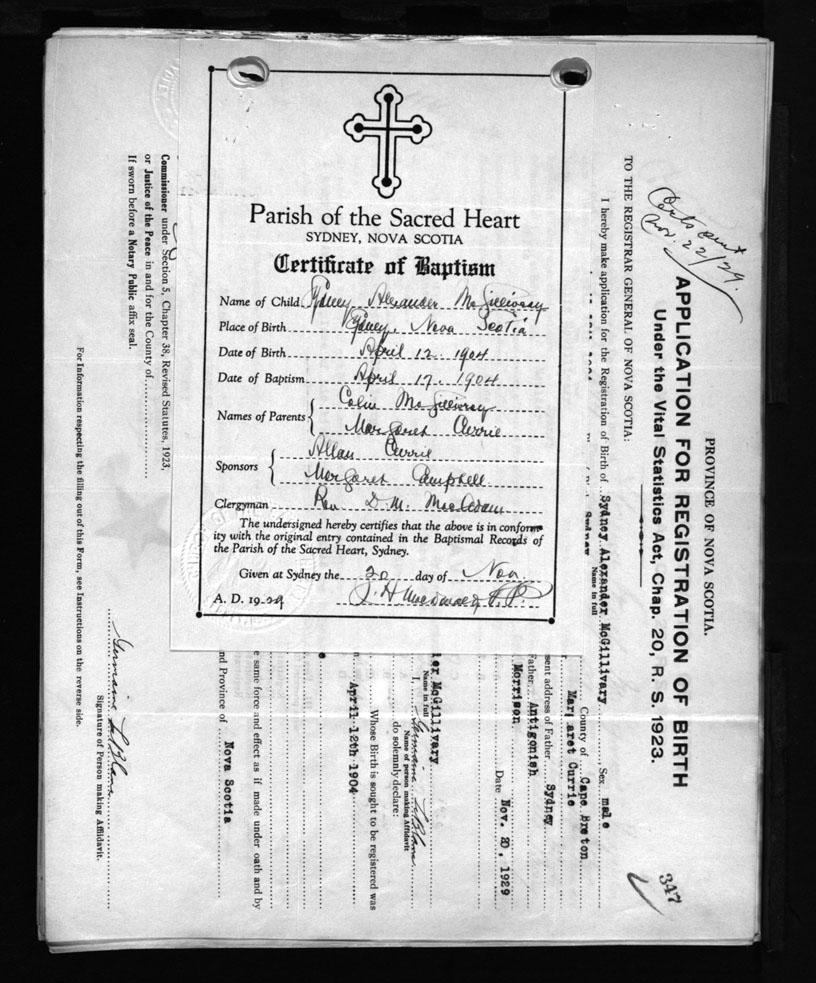 Parish of the Sacred Heart
SYDNEY, NOVA SCOTIA
Certificate of Baptism
Name of Child Sydney Alexander McGillivray
Place of Birth Sydney, Nova Scotia
Date of Birth April 12 1904
Date of Baptism April 17, 1904
Names of Parents { Colin McGillivray
Margaret Currie
Sponsors { Allan Currie
Margaret Campbell
Clergyman Rev D. M. MacAdam
The undersigned hereby certifies that the above is in conform-
ity with the original entry contained in the Baptismal Records of
the Parish of the Sacred Heart, Sydney.
Given at Sydney the 20 day of Nov
A. D. 1929 J. H. Macdonald P. P.
PROVINCE OF NOVA SCOTIA.
APPLICATION FOR REGISTRATION OF BIRTH
Under the Vital Statistics Act, Chap. 20, R. S. 1923.
Nov. 22/29.
347
TO THE REGISTRAR GENERAL OF NOVA SCOTIA:
I hereby make application for the Registration of Birth of Sydney Alexander McGillivary Sex male
Name in full
Sydney County of Cape Breton
Margaret Currie
sent address of Father Sydney
Father Antigonish
Morrison
Date Nov. 20, 1929
der McGillivary
Name in full
I, Germaine LeBlanc
Name of person making Affidavit
do solemnly declare:
Whose Birth is sought to be registered was
n April 12th 1904
e
e same force and effect as if made under oath and by
nd Province of Nova Scotia
Commissioner under Section 5, Chapter 38, Revised Statutes, 1923,
or Justice of the Peace in and for the County of
If sworn before a Notary Public affix seal.
Germaine LeBlanc
Signature of Person making Affidavit.
For Information respecting the filling out of this Form, see Instructions on the reverse side.